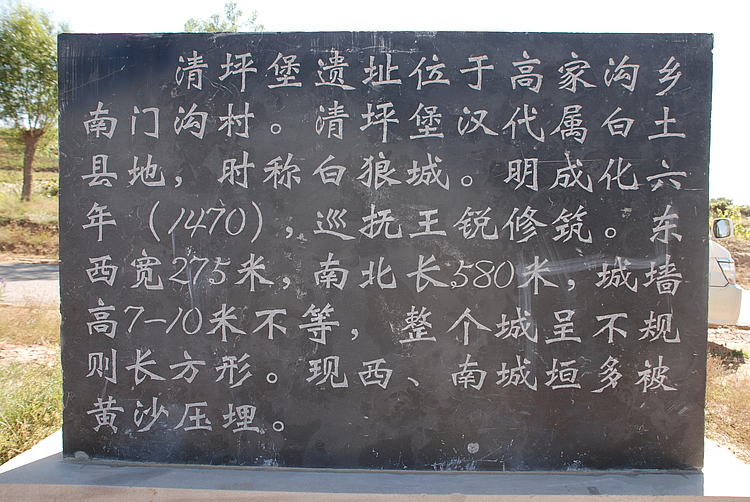 清坪堡遗址位于高家沟乡
南门沟村。清坪堡汉代属白土
县地，时称白狼城。明成化六
年（1470），巡抚王锐修筑。东
西宽275米，南北长580米，城墙
高7—10米不等，整个城呈不规
则长方形。现西、南城垣多被
黄沙压埋。